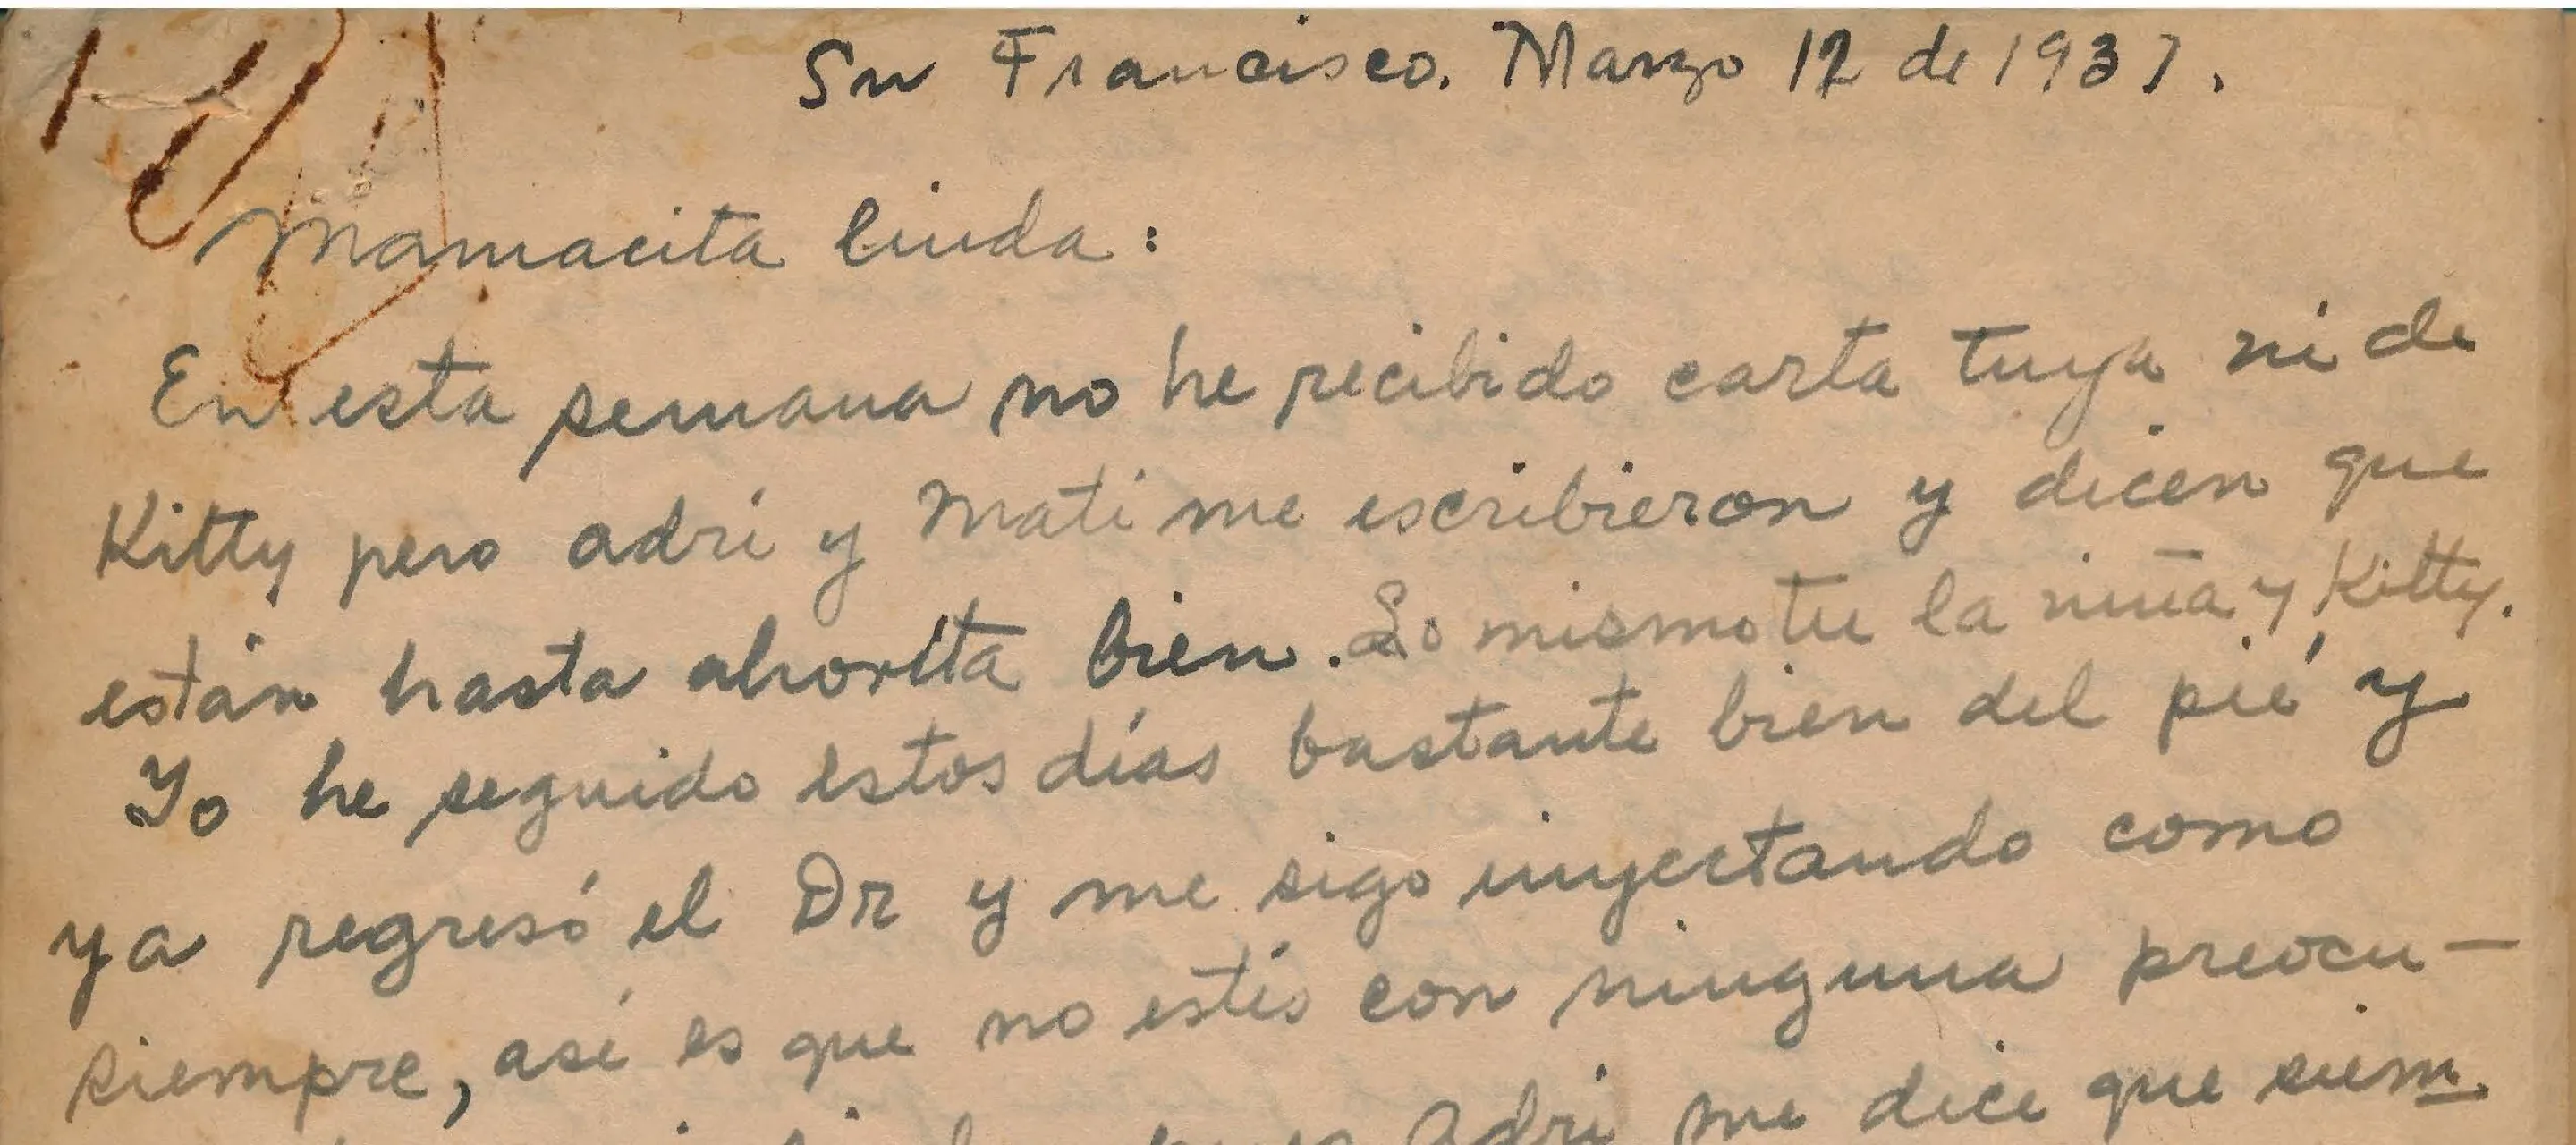 Sn Francisco. Marzo 12 de 1937.
Mamacita linda:
En esta semana no he recibido carta tuya ni de
Kitty pero Adri y Mati me escribieron y dicen que
están hasta ahorita bien. Lo mismo tu la niña y Kitty.
Yo he seguido estos días bastante bien del pié y
ya regresó el Dr y me sigo inyectando como
siempre, así es que no estés con ninguna preocu-
Adri me dice que siem-